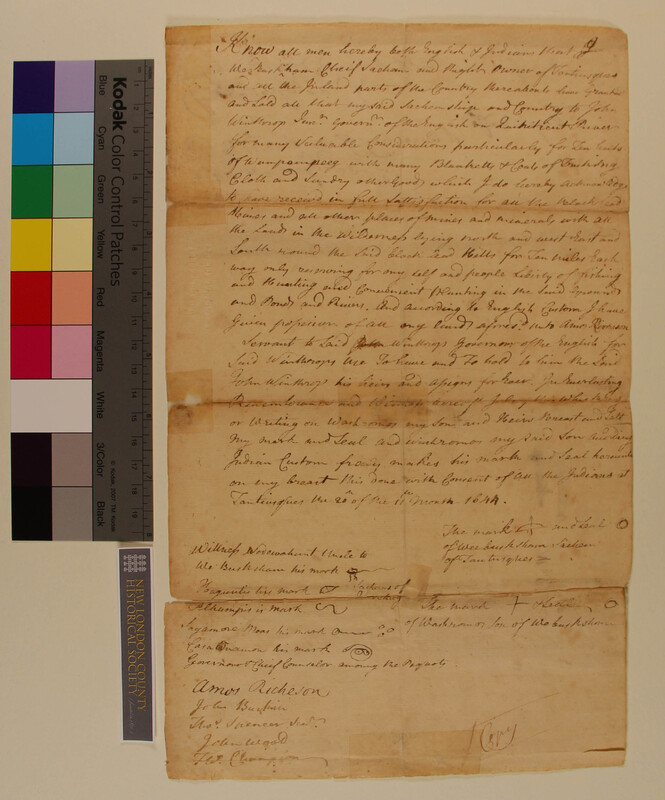 Know all men hereby both English & Indians that I
We Buskham Cheif Sachem and Right Owner of Tantiusques
and all the Inland parts of the Country thereabouts have granted
and Sold all that my said Sachemship and Country to John
Winthrop Junr. Governr. of the English on Conecticut River
for many Valuable Considerations particularly for Ten belts
of Wampampeeg with many Blanketts & Coats of Trucking
Cloth and Sundry other Goods which I do hereby acknowledge
to have received in full Sattisfaction for all the black lead
Mines and all other places of mines and minerals with all
the Lands in the Wilderness lying north and west East and
South round the said black Lead Hills for Ten miles Each
way only reserving for my self and people liberty of fishing
and Hunting and Convenient planting in the said grounds
and Ponds and Rivers. And according to English Custom I have
Given possession of all my lands aforesd. unto Amos Richeson
Servant to said Winthrop Governor of the English for
said Winthrops Use To have and To hold to him the said
John Winthrop his heirs and assigns for Ever. In Everlasting
Remembrance and Witness
or Writing on Washcomos my Son and Heirs Breast and Sett
my mark and Seal and Washcomos my said Son
Indian Custom freely makes his mark and Seal hereunto
on my breast this done with Consent of all the Indians at
Tantiusques the 20th of the 11th month 1644.
The mark and Seal
of Webuckksham Sachem
of Tantiusques
Wittness Nodowahunt Uncle to
We Bucksham his mark
Sachems of
his mark
is mark
The mark & Seal
of Washcomos Son of Webucksham
Sagamore Moas his mark
Casa his mark
Governour & Cheif Counselor among the Pequots
Amos Richeson
John
Thos. Spencer Senr.
John Wood
Thos. Champion
Copy
Kodak
Color Control Patches
Blue
Cyan
Green
Yellow
Red
Magenta
White
3/Color
Black
© Kodak, 2007 TM: Kodak
NEW LONDON COUNTY
HISTORICAL SOCIETY